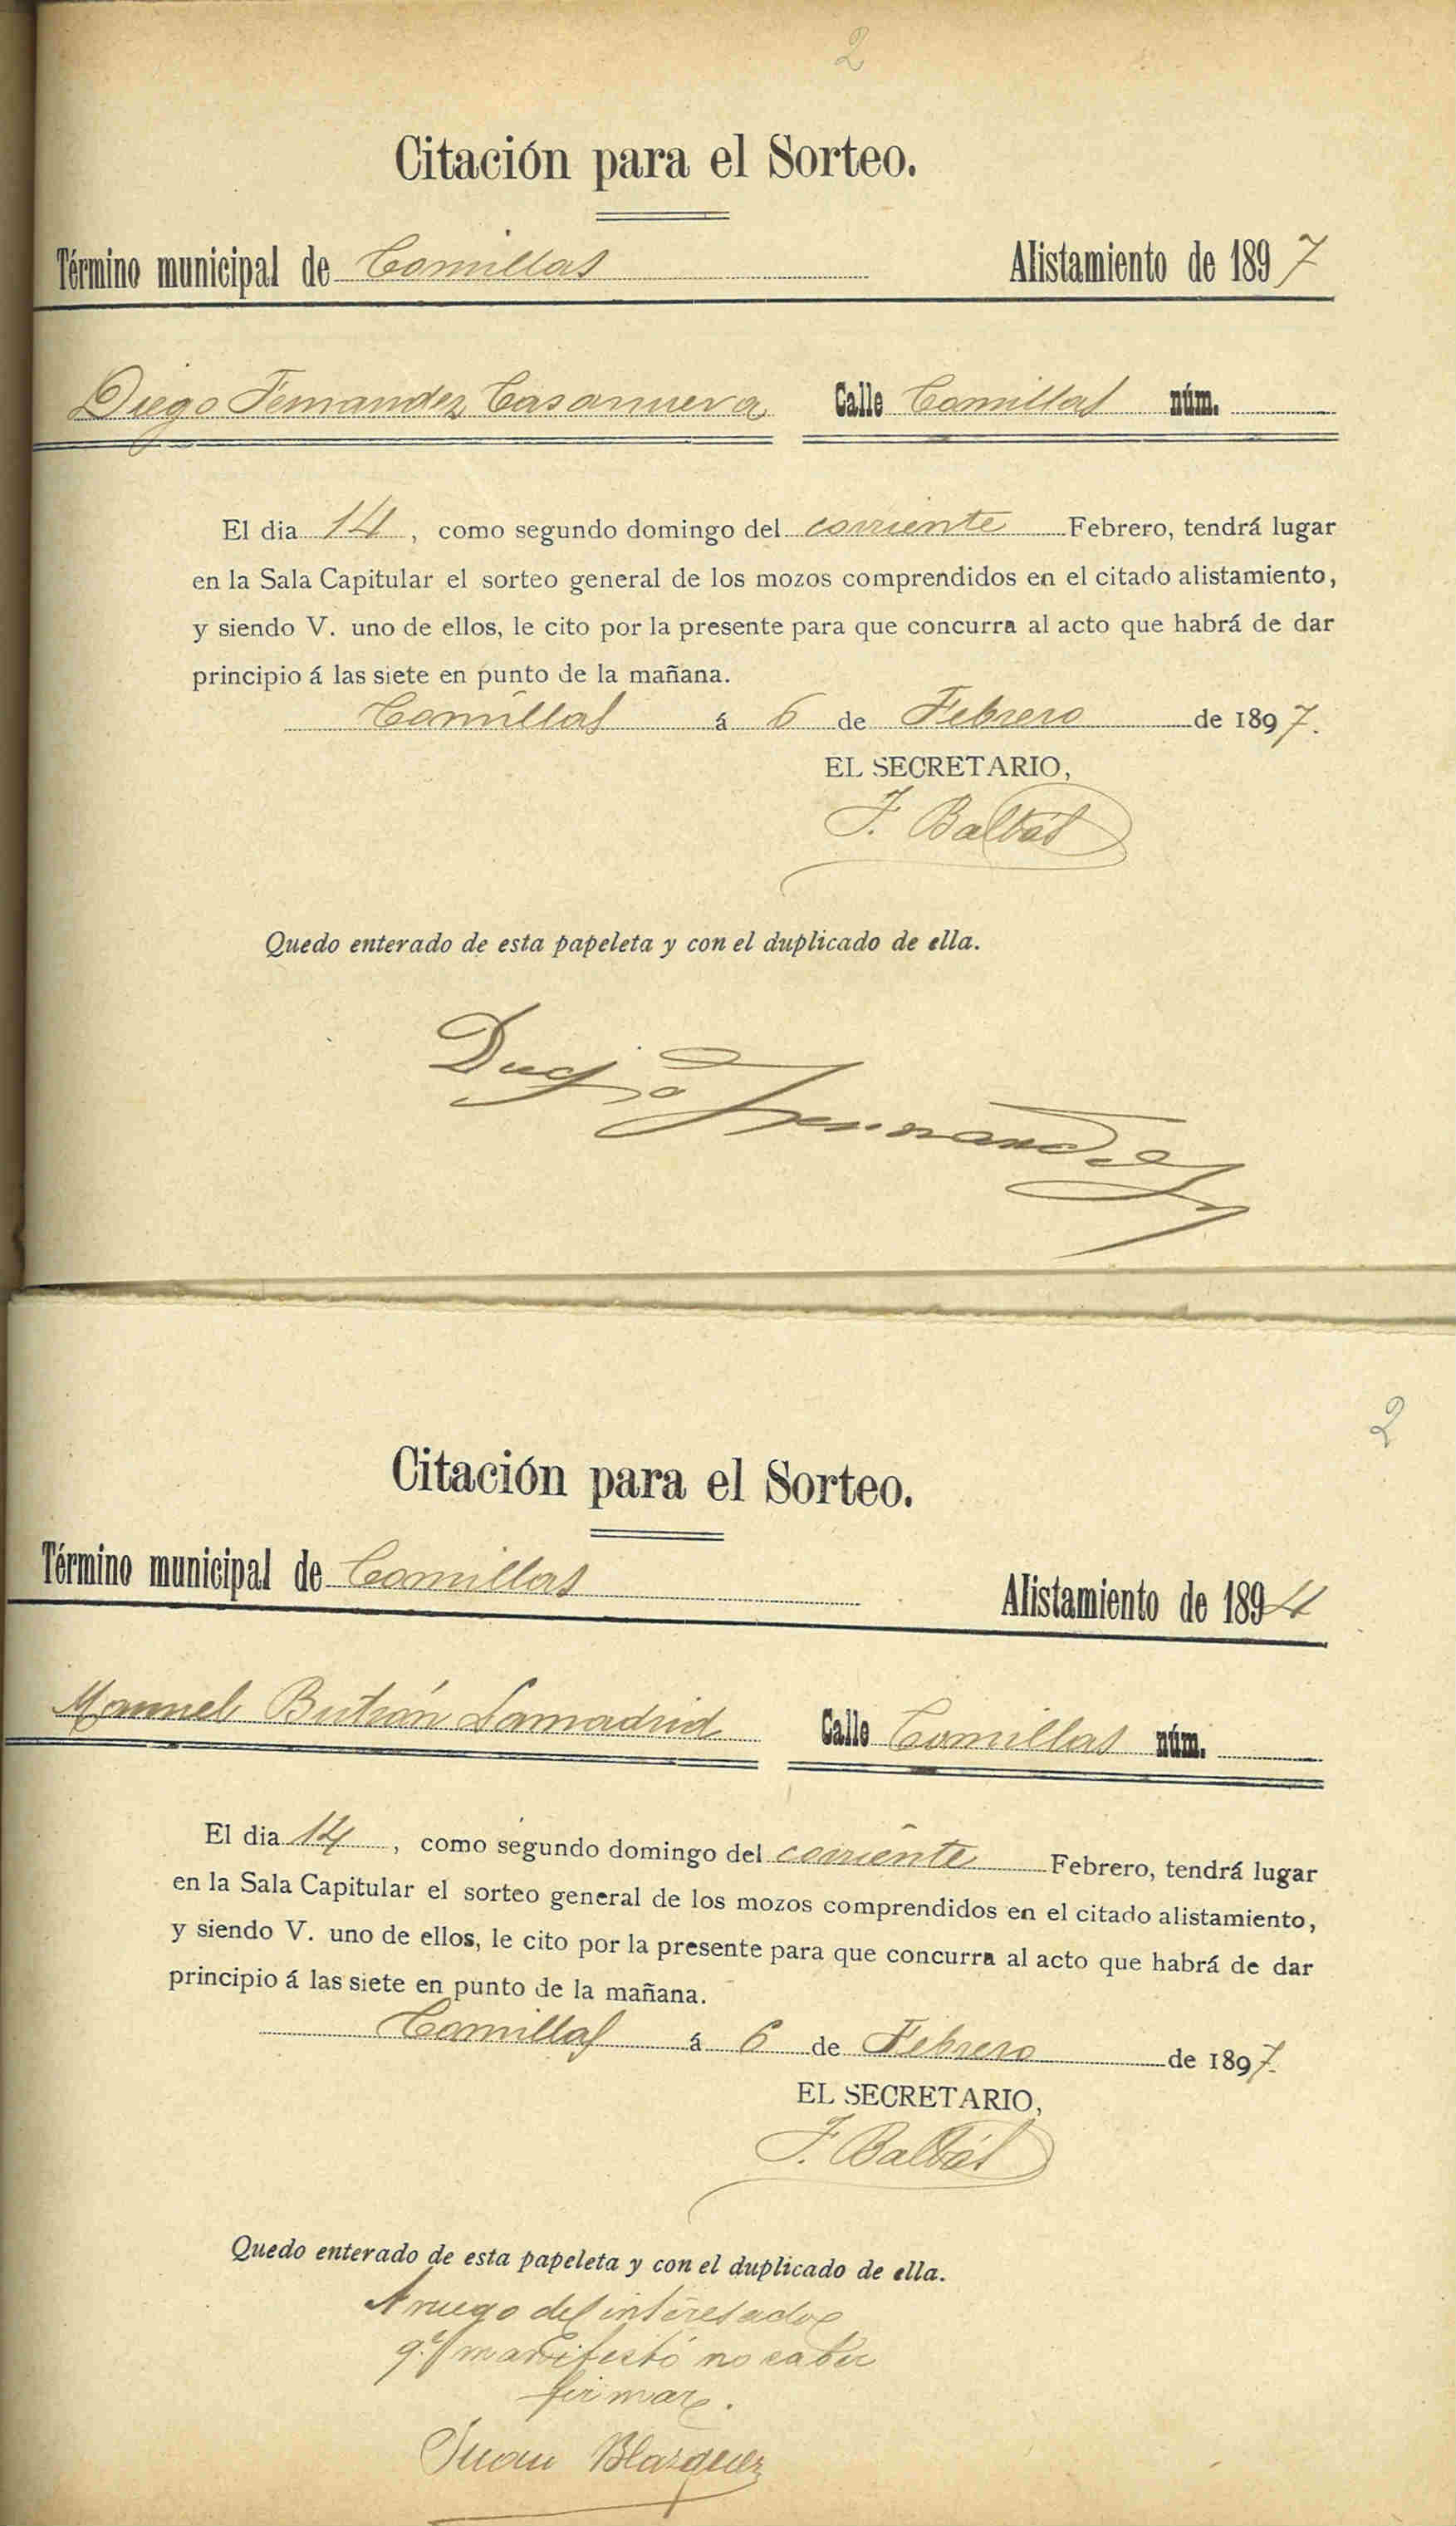 2
Citación para el Sorteo.
Término municipal de Comillas Alistamiento de 1897
Diego Fernandez Casanueva Calle Comillas núm.
El dia 14, como segundo domingo del corriente Febrero, tendrá lugar
en la Sala Capitular el sorteo general de los mozos comprendidos en el citado alistamiento,
y siendo V. uno de ellos, le cito por la presente para que concurra al acto que habrá de dar
principio á las siete en punto de la mañana.
Comillas á 6 de Febrero de 1897.
EL SECRETARIO,
F. Balbás
Quedo enterado de esta papeleta y con el duplicado de ella.
Diego Fernandez
2
Citación para el Sorteo.
Término municipal de Comillas Alistamiento de 1894
Manuel Butrón Lamadrid Calle Comillas núm.
El dia 14, como segundo domingo del corriente Febrero, tendrá lugar
en la Sala Capitular el sorteo general de los mozos comprendidos en el citado alistamiento,
y siendo V. uno de ellos, le cito por la presente para que concurra al acto que habrá de dar
principio á las siete en punto de la mañana.
Comillas á 6 de Febrero de 1897.
EL SECRETARIO,
F. Balbás
Quedo enterado de esta papeleta y con el duplicado de ella.
A ruego del interesado
q.e manifestó no saber
firmar.
Juan Blazquez